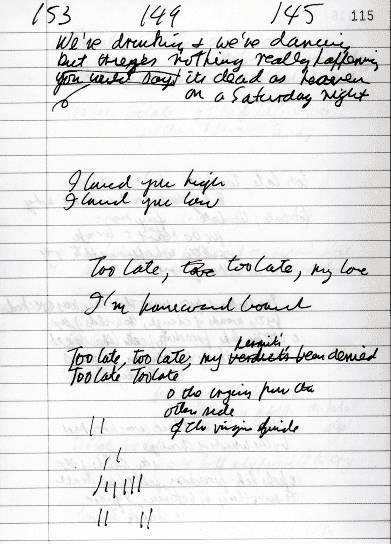 153 149 145 115
We're drinking & we're dancing
but there's nothing really happening
you might say its dead as heaven
on a Saturday night
I loved you high
I loved you low
Too late, too late, my love
I'm homeward bound
permit's
Too late, too late, my verdict's been denied
Too late Too late
o the
other side
of the virgin